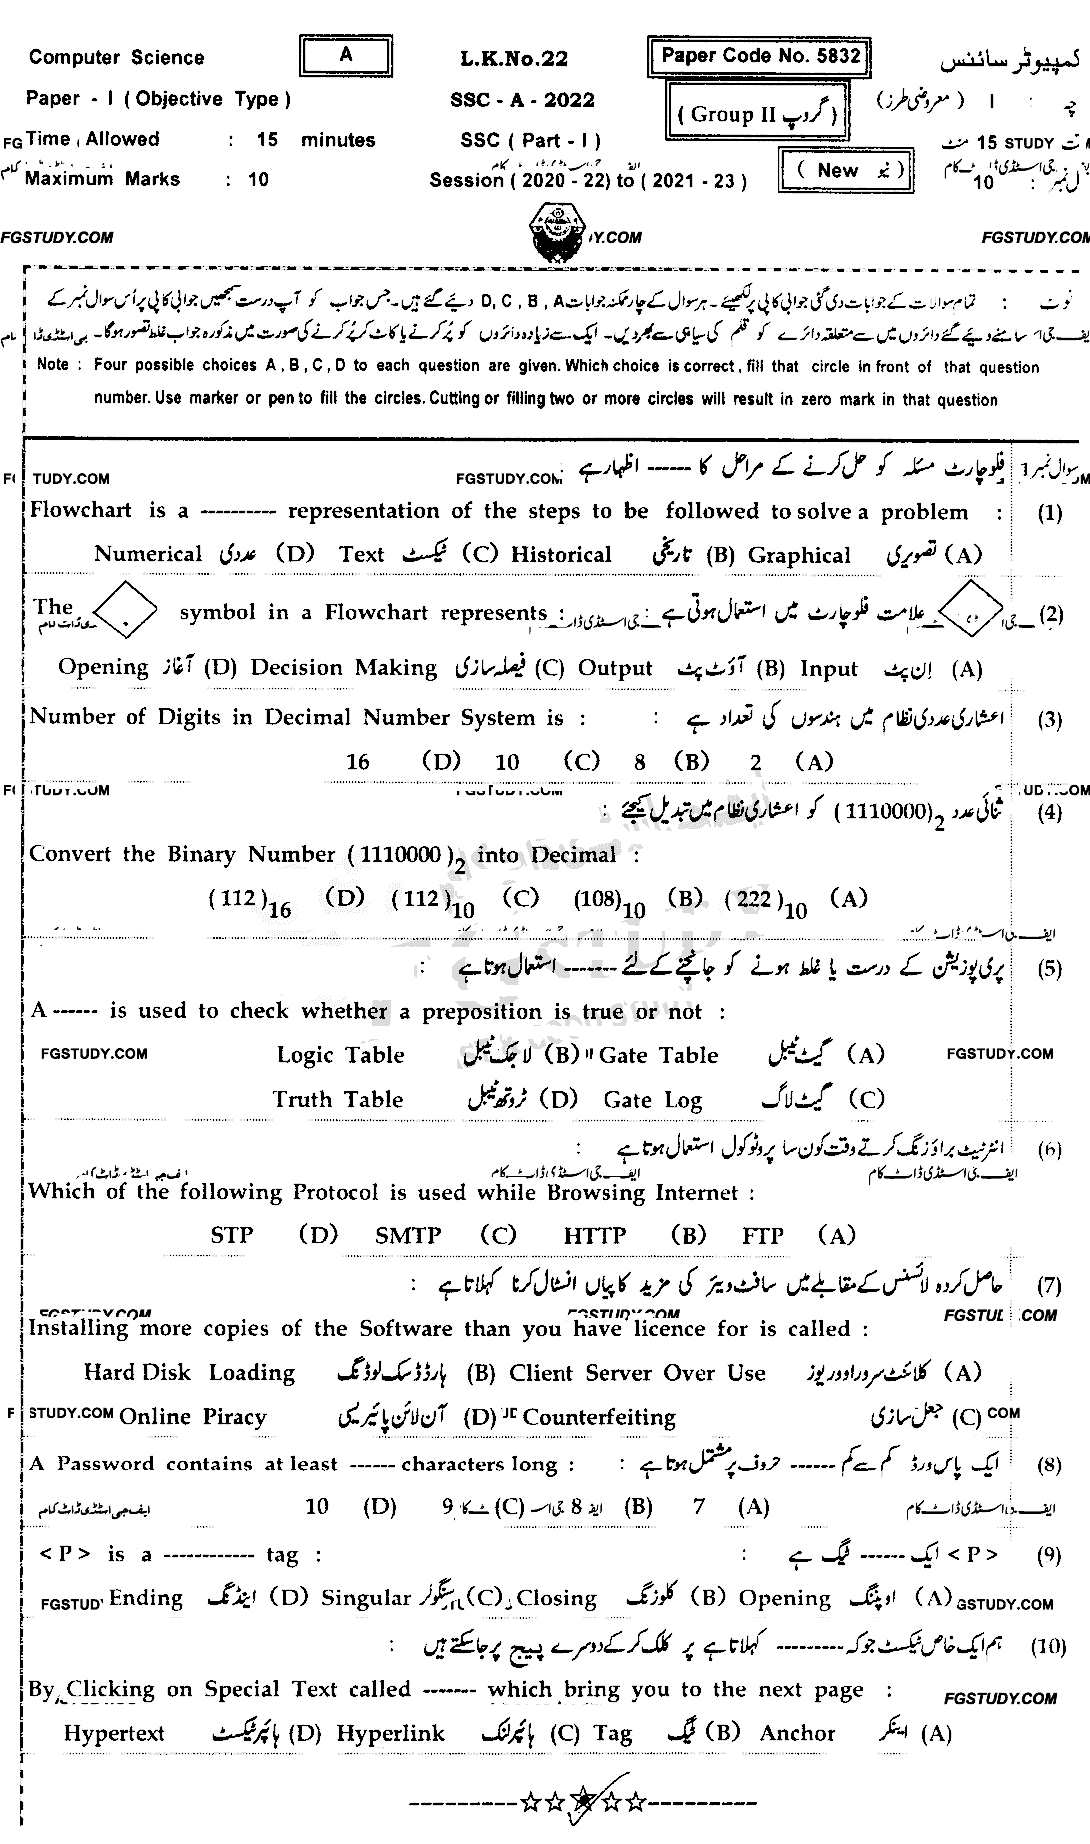 Computer Science A L.K.No.22 Paper Code No. 5832 کمپیوٹر سائنس
Paper - I ( Objective Type ) SSC - A - 2022 ( Group II گروپ ) چہ : I ( معروضی طرز )
FG Time Allowed : 15 minutes SSC ( Part - I ) 15 STUDY منٹ
Maximum Marks : 10 Session ( 2020 - 22) to ( 2021 - 23 ) ( New نیو ) 10
FGSTUDY.COM Y.COM FGSTUDY.COM
نوٹ : تمام سوالات کے جوابات دی گئی جوابی کاپی پر لکھیئے ۔ ہر سوال کے چار ممکنہ جوابات D , C , B , A دیئے گئے ہیں ۔ جس جواب کو آپ درست سمجھیں جوابی کاپی پر اُس سوال نمبر کے
سامنے دیئے گئے دائروں میں سے متعلقہ دائرے کو قلم کی سیاہی سے بھر دیں ۔ ایک سے زیادہ دائروں کو پُر کرنے یا کاٹ کر پُر کرنے کی صورت میں مذکورہ جواب غلط تصور ہوگا ۔
Note : Four possible choices A , B , C , D to each question are given. Which choice is correct , fill that circle in front of that question
number. Use marker or pen to fill the circles. Cutting or filling two or more circles will result in zero mark in that question
TUDY.COM FGSTUDY.COM سوال نمبر 1 فلوچارٹ مسئلہ کو حل کرنے کے مراحل کا ------ اظہار ہے
Flowchart is a ---------- representation of the steps to be followed to solve a problem : (1)
Numerical عددی (D) Text ٹیکسٹ (C) Historical تاریخی (B) Graphical تصویری (A)
The symbol in a Flowchart represents : علامت فلوچارٹ میں استعمال ہوتی ہے : (2)
Opening آغاز (D) Decision Making فیصلہ سازی (C) Output آؤٹ پٹ (B) Input اِن پٹ (A)
Number of Digits in Decimal Number System is : اعشاری عددی نظام میں ہندسوں کی تعداد ہے : (3)
16 (D) 10 (C) 8 (B) 2 (A)
ثنائی عدد ( 1110000 )2 کو اعشاری نظام میں تبدیل کیجئے : (4)
Convert the Binary Number ( 1110000 )2 into Decimal :
( 112 )16 (D) ( 112 )10 (C) (108)10 (B) ( 222 )10 (A)
پری پوزیشن کے درست یا غلط ہونے کو جانچنے کے لئے ------- استعمال ہوتا ہے : (5)
A ------ is used to check whether a preposition is true or not :
FGSTUDY.COM Logic Table لاجک ٹیبل (B) Gate Table گیٹ ٹیبل (A) FGSTUDY.COM
Truth Table ٹروتھ ٹیبل (D) Gate Log گیٹ لاگ (C)
انٹرنیٹ براؤزنگ کرتے وقت کون سا پروٹوکول استعمال ہوتا ہے : (6)
ایف جی اسٹڈی ڈاٹ کام ایف جی اسٹڈی ڈاٹ کام
Which of the following Protocol is used while Browsing Internet :
STP (D) SMTP (C) HTTP (B) FTP (A)
حاصل کردہ لائسنس کے مقابلے میں سافٹ ویئر کی مزید کاپیاں انسٹال کرنا کہلاتا ہے : (7)
FGSTUDY.COM FGSTUDY.COM FGSTUD .COM
Installing more copies of the Software than you have licence for is called :
Hard Disk Loading ہارڈ ڈسک لوڈنگ (B) Client Server Over Use کلائنٹ سرور اوور یوز (A)
F STUDY.COM Online Piracy آن لائن پائیریسی (D) Counterfeiting جعل سازی (C) COM
A Password contains at least ------ characters long : ایک پاس ورڈ کم سے کم ------ حروف پر مشتمل ہوتا ہے : (8)
ایف جی اسٹڈی ڈاٹ کام 10 (D) 9 (C) 8 (B) 7 (A) ایف جی اسٹڈی ڈاٹ کام
< P > is a ------------ tag : < P > ایک ------ ٹیگ ہے : (9)
FGSTUD Ending اینڈنگ (D) Singular سنگولر (C) Closing کلوزنگ (B) Opening اوپننگ (A) GSTUDY.COM
ہم ایک خاص ٹیکسٹ جو کہ --------- کہلاتا ہے پر کلک کر کے دوسرے پیج پر جا سکتے ہیں : (10)
By Clicking on Special Text called ------- which bring you to the next page : FGSTUDY.COM
Hypertext ہائپر ٹیکسٹ (D) Hyperlink ہائپر لنک (C) Tag ٹیگ (B) Anchor اینکر (A)
---------☆☆★☆☆---------